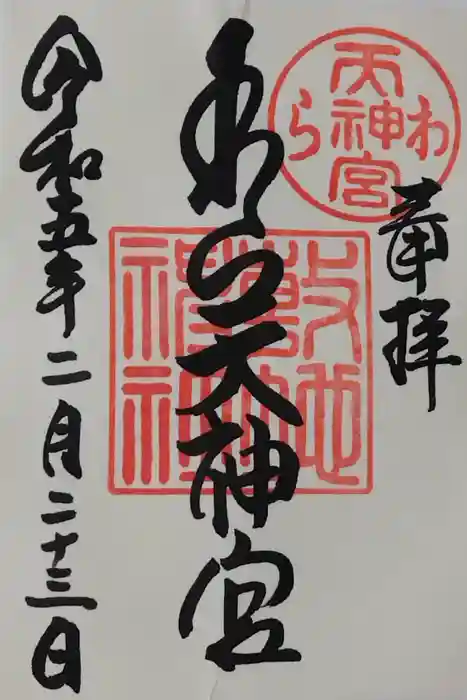 奉拝
わら天神宮
わら天神宮
敷地神社
令和五年二月二十三日